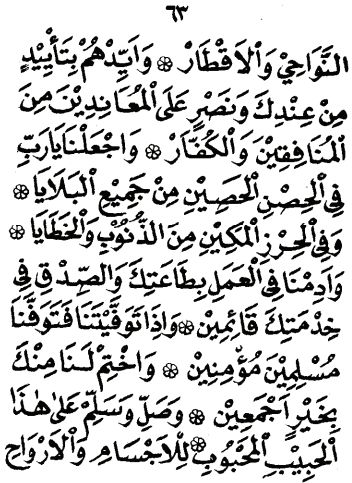 ٦٣
النَّوَاحِيْ وَالْاَقْطَارْ ۞ وَاَيِّدْهُمْ بِتَأْيِيْدٍ
مِنْ عِنْدِكَ وَنَصْرٍ عَلَى الْمُعَانِدِيْنَ مِنَ
الْمُنَافِقِيْنَ وَالْكُفَّارْ ۞ وَاجْعَلْنَا يَارَبِّ
فِى الْحِصْنِ الْحَصِيْنِ مِنْ جَمِيْعِ الْبَلَايَا ۞
وَفِى الْحِرْزِ الْمَكِيْنِ مِنَ الذُّنُوْبِ وَالْخَطَايَا ۞
وَاَدِمْنَا فِى الْعَمَلِ بِطَاعَتِكَ وَالصِّدْقِ فِى
خِدْمَتِكَ قَائِمِيْنَ ۞ وَاِذَا تَوَفَّيْتَنَا فَتَوَفَّنَا
مُسْلِمِيْنَ مُؤْمِنِيْنَ ۞ وَاخْتِمْ لَنَا مِنْكَ
بِخَيْرٍ اَجْمَعِيْنَ ۞ وَصَلِّ وَسَلِّمْ عَلَى هٰذَا
الْحَبِيْبِ الْمَحْبُوْبِ ۞ لِلْاَجْسَامِ وَالْاَرْوَاحِ